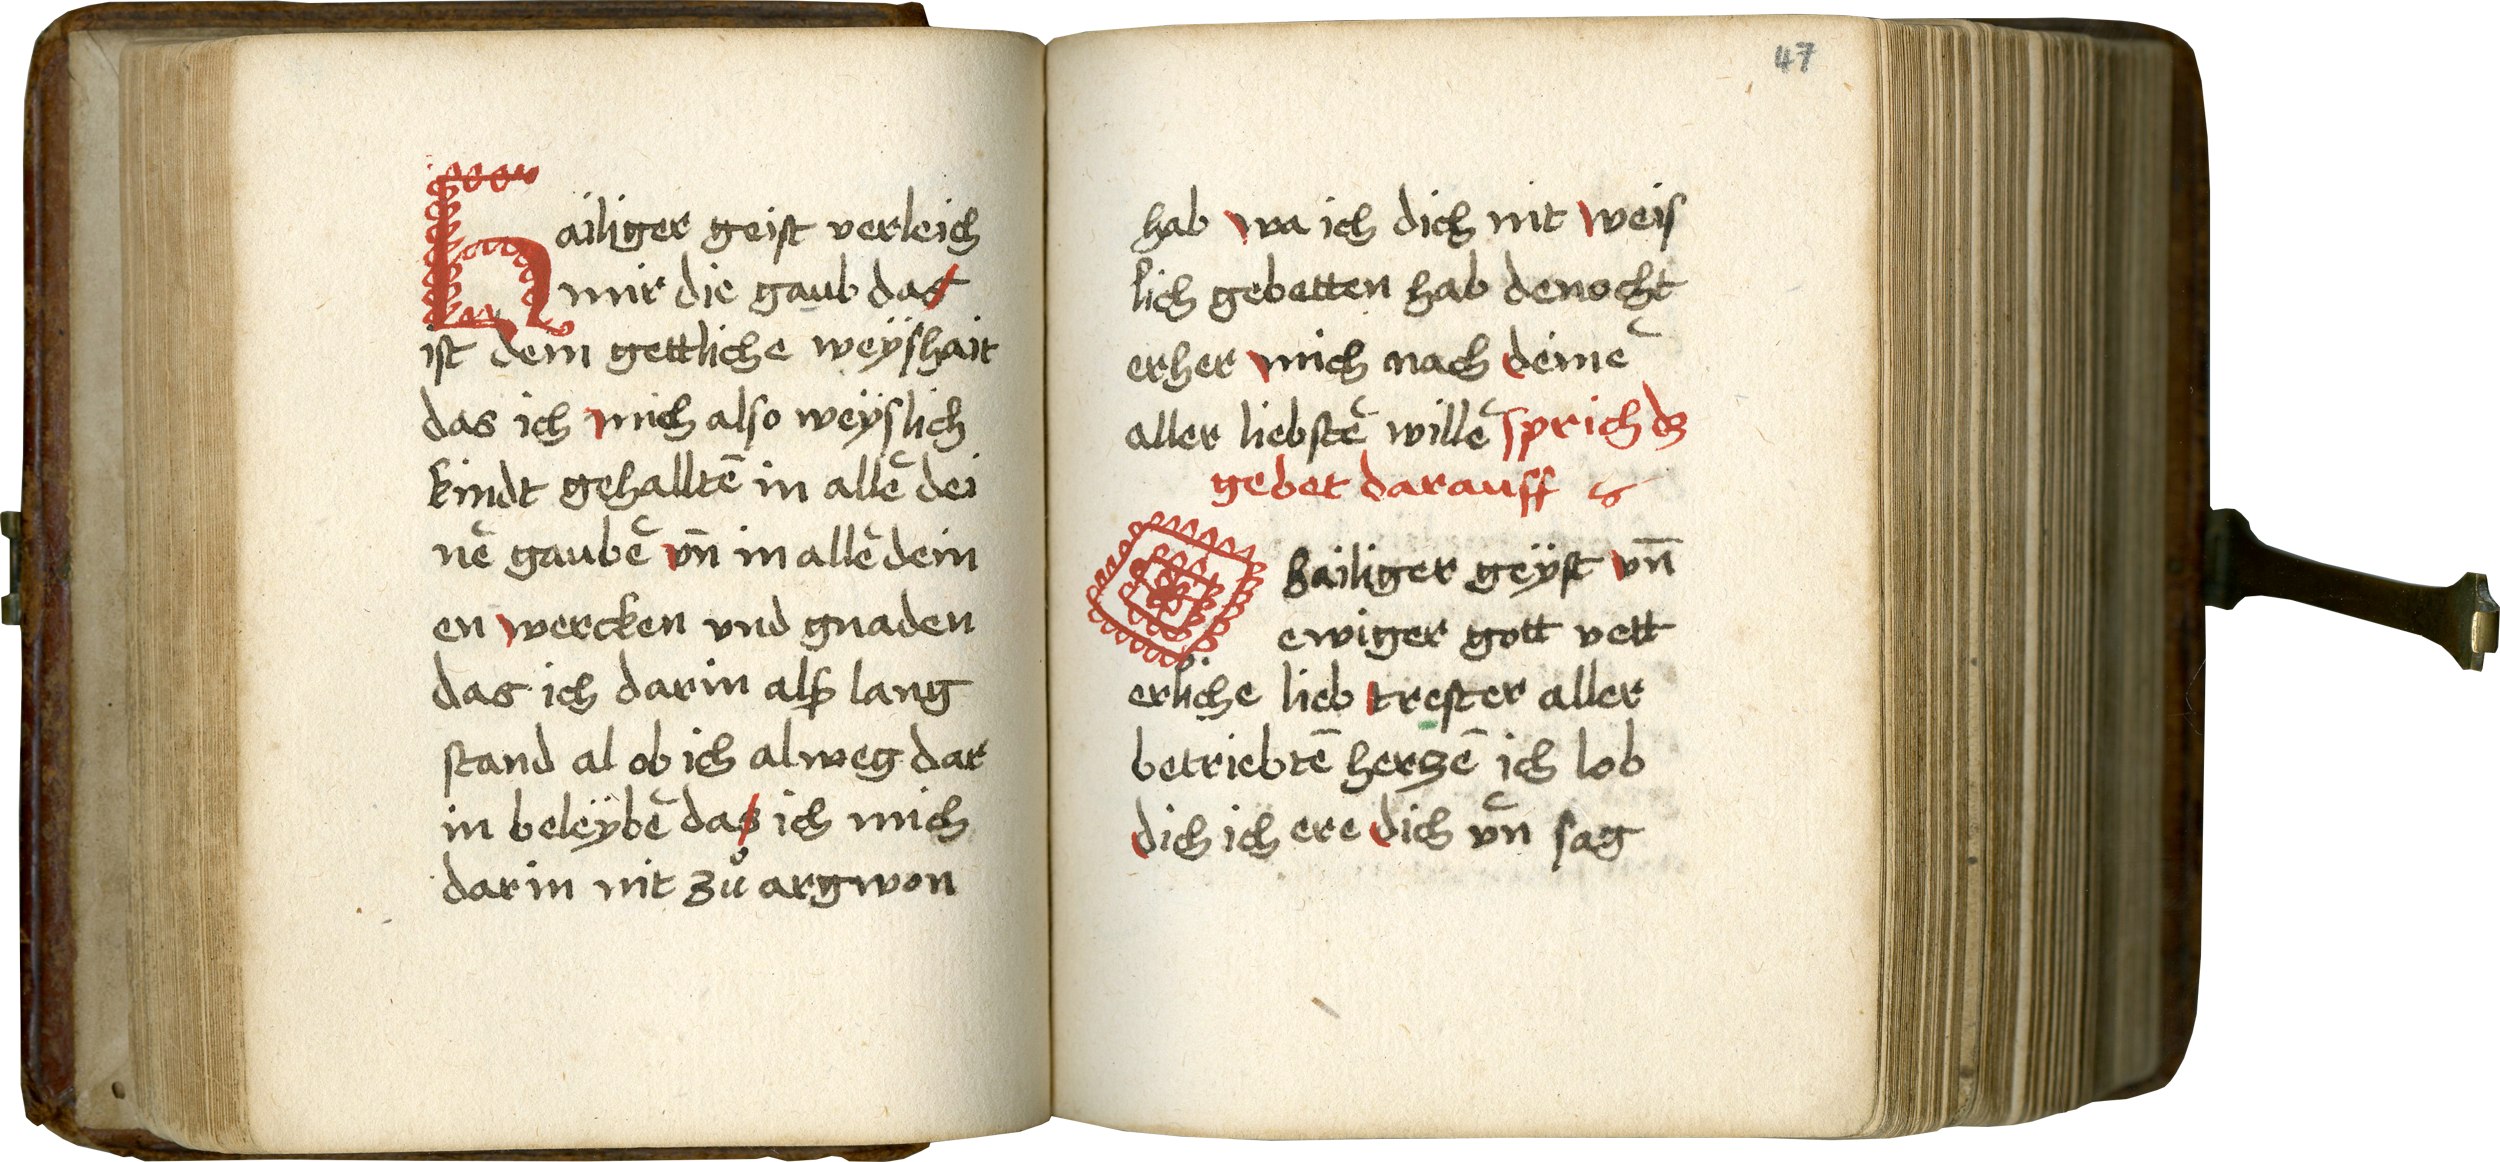 Hailiger geist verleich
mir die gaub das
ist dem gettliche weÿshait
das ich mich also weÿslich
kindt gehalltē in allē dei
nē gaubē vn̄ in allē dein
en wercken vnd gnaden
das ich darin als lang
stand al ob ich alweg dar
in beleÿbē das ich mich
darin nit zů argwon
47
hab wa ich dich nit weis
lich gebetten hab denocht
erher mich nach deinē
aller liebstē willē sprich dz
gebet darauff
O hailiger geÿst vn̄
ewiger gott vett
erliche lieb trester aller
betriebtē herzē ich lob
dich ich ere dich vn̄ sag